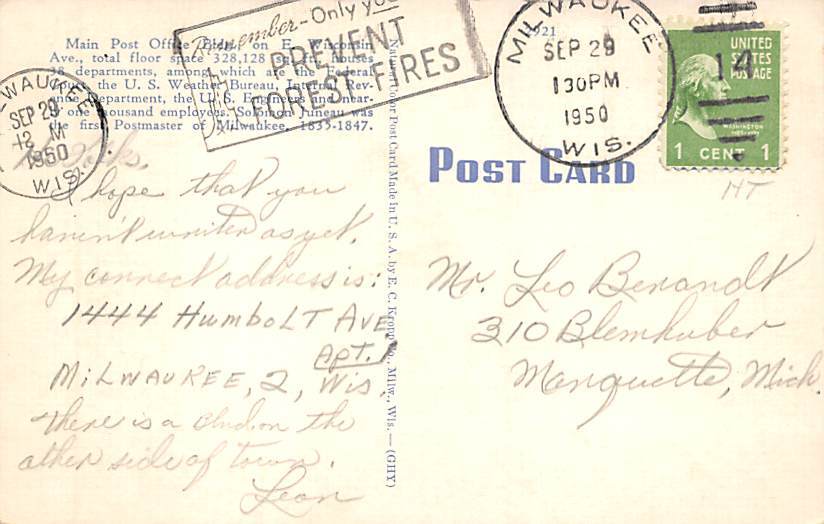 Main Post Office Bldg., on E. Wisconsin
Ave., total floor space 328,128 sq. ft., houses
38 departments, among which are the Federal
Court, the U. S. Weather Bureau, Internal Rev-
enue Department, the U. S. Engineers
one thousand employees. Solomon Juneau was
first Postmaster of Milwaukee, 1835-1847.
MILWAUKEE
SEP 29
12 M
1950
WIS.
Remember - Only you
PREVENT
FOREST FIRES
1921
MILWAUKEE
SEP 29
130 PM
1950
WIS.
14
UNITED
STATES
POSTAGE
WASHINGTON
1 CENT 1
POST CARD
Natural Color Post Card Made in U. S. A. by E. C. Kropp Co., Milw., Wis.—(GHY)
Folks,
I hope that you
haven't written as yet.
My correct address is:
1444 HUMBOLT AVE
APT. 1
MILWAUKEE, 2, WIS.
There is a on the
other side of town.
Leon
Mr. Leo Berandt
310 Blemhuber
Marquette, Mich.